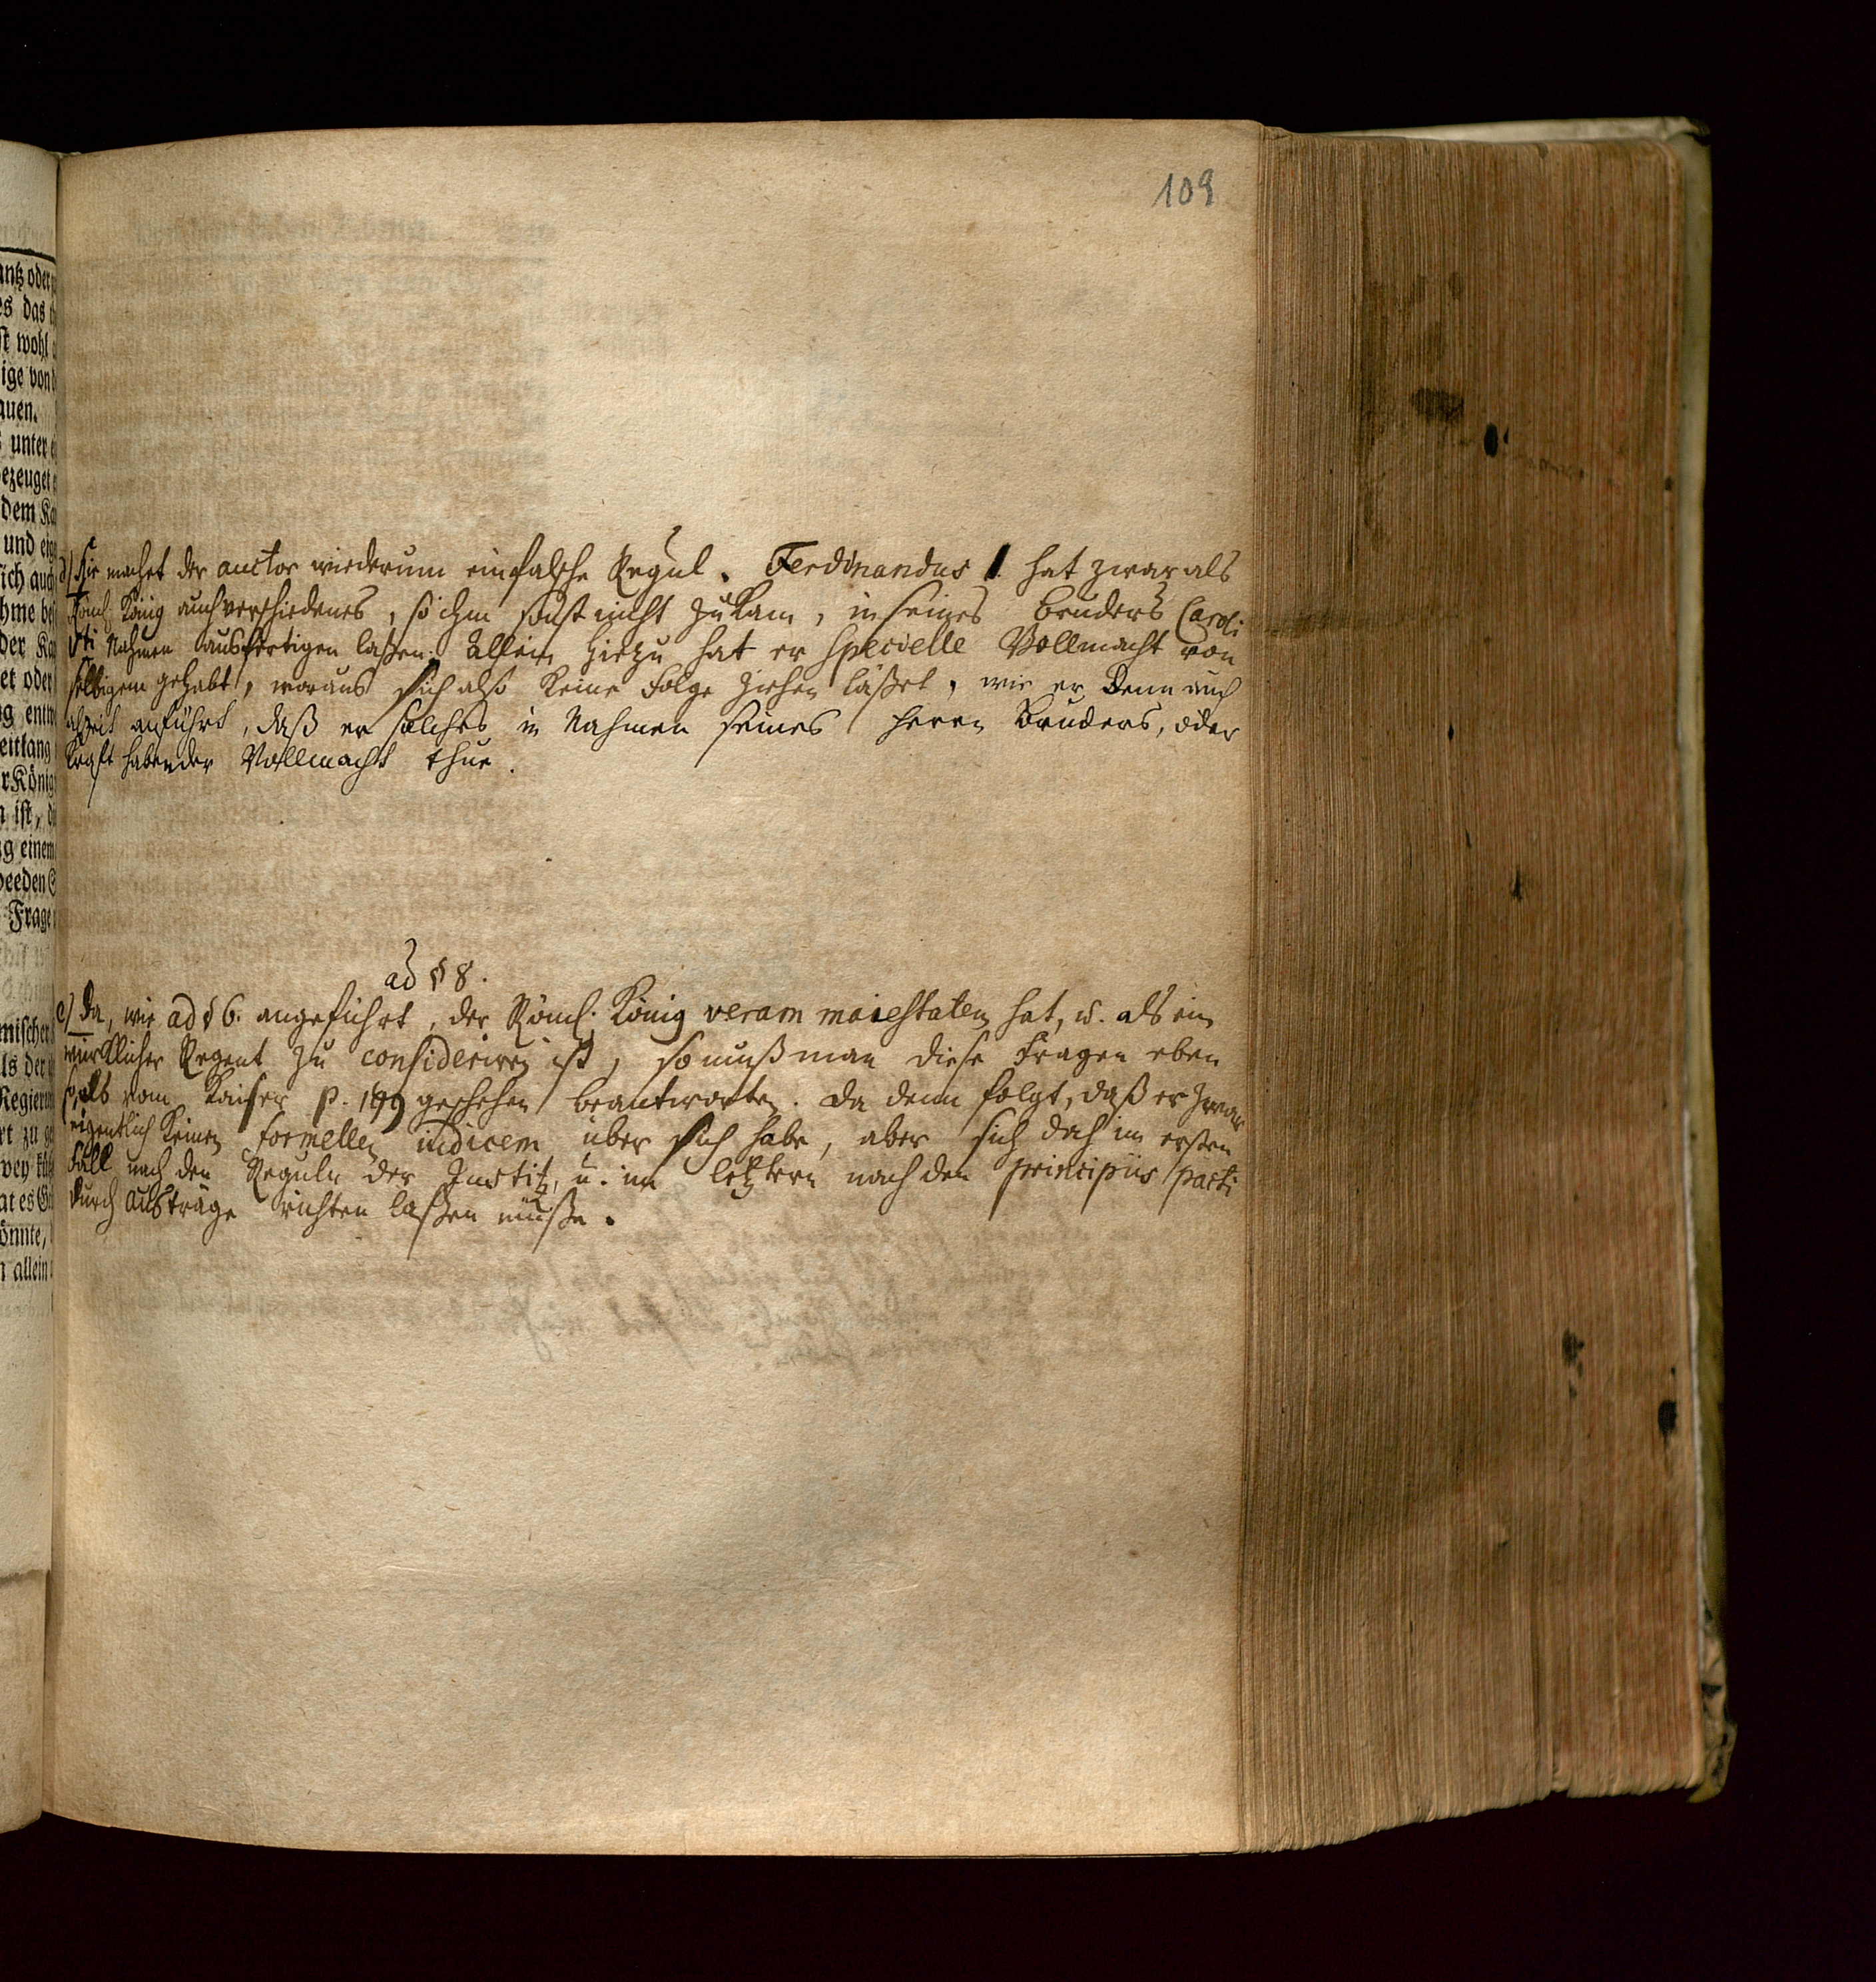 109
d) Hie machet der auctor wiederum ein falsche Regul. Ferdinandus I. hat zwar als
Röm. König auch verschiedenes, so ihm sonst nicht zukam, in seines Bruders Caroli
Vti Nahmen ausfertigen laßen; Allein hiezu hat er specielle Vollmacht von
selbigem gehabt, woraus sich also keine Folge ziehen läßet, wie er denn auch
anführt, daß er solches in Nahmen seines Herrn Bruders, oder
Krafft habender Vollmacht thue.
ad § 8.
e) Da, wie ad § 6. angeführt, der Röml. König veram maiestatem hat, u. als ein
würcklicher Regent zu consideriren ist, so muß man diese Fragen eben
so, als vom Kaiser p. 199 geschehen beantworten. Da denn folgt, daß er zwar
eigentlich keinen formellen iudicem über sich habe, aber sich doch im ersten
Fall nach den Reguln der Justitz, u. im letztern nach den principiis pacti
durch Austräge richten laßen müße.
antz oder
es das
st wohl
ige von
auen.
unter
bezeuget
dem
und
sich auch
der
et oder
eitlang
r König
ist,
g einem
beeden
Frage
mischen
ls der
rt zu
at es
önnte,
allein